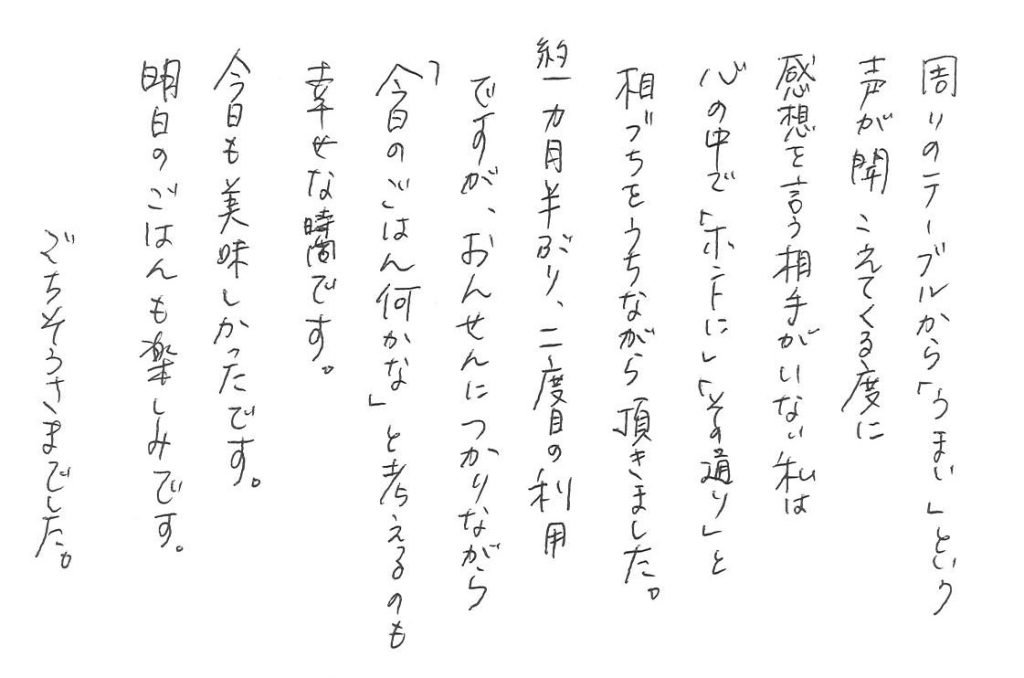 周りのテーブルから「うまい」という
声が聞こえてくる度に
感想を言う相手がいない私は
心の中で「ホントに」「その通り」と
相づちをうちながら頂きました。
約一カ月半ぶり、二度目の利用
ですが、おんせんにつかりながら
「今日のごはん何かな」と考えるのも
幸せな時間です。
今日も美味しかったです。
明日のごはんも楽しみです。
ごちそうさまでした。